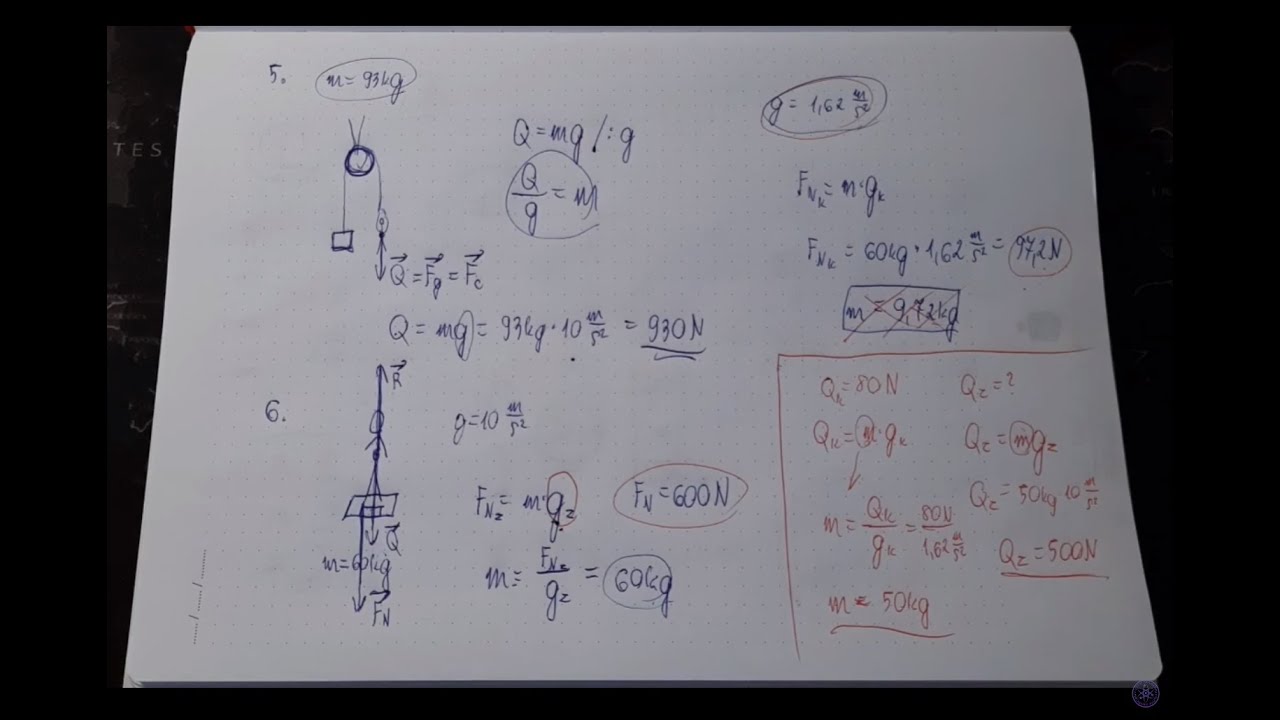 TES
5.
m = 93kg
Q = mg /: g
Q/g = m
Q⃗ = F⃗g = F⃗c
Q = mg = 93kg · 10 m/s² = 930N
g = 1,62 m/s²
F_Nk = m · gk
F_Nk = 60kg · 1,62 m/s² = 97,2N
m = 9,72kg
6.
R⃗
g = 10 m/s²
F_Nz = m · gz
F_N = 600N
Q⃗
m = 60kg
F⃗N
m = F_Nz/gz = 60kg
Qk = 80N
Qz = ?
Qk = m · gk
Qz = mgz
Qz = 50kg 10 m/s²
m = Qk/gk = 80N/1,62 m/s²
Qz = 500N
m = 50kg
..../..../....